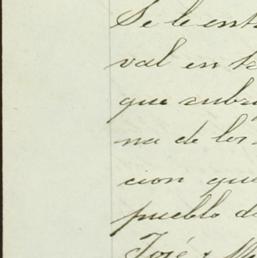 Se le ent
val en t
que subr
na de los
cion que
pueblo d
José y M